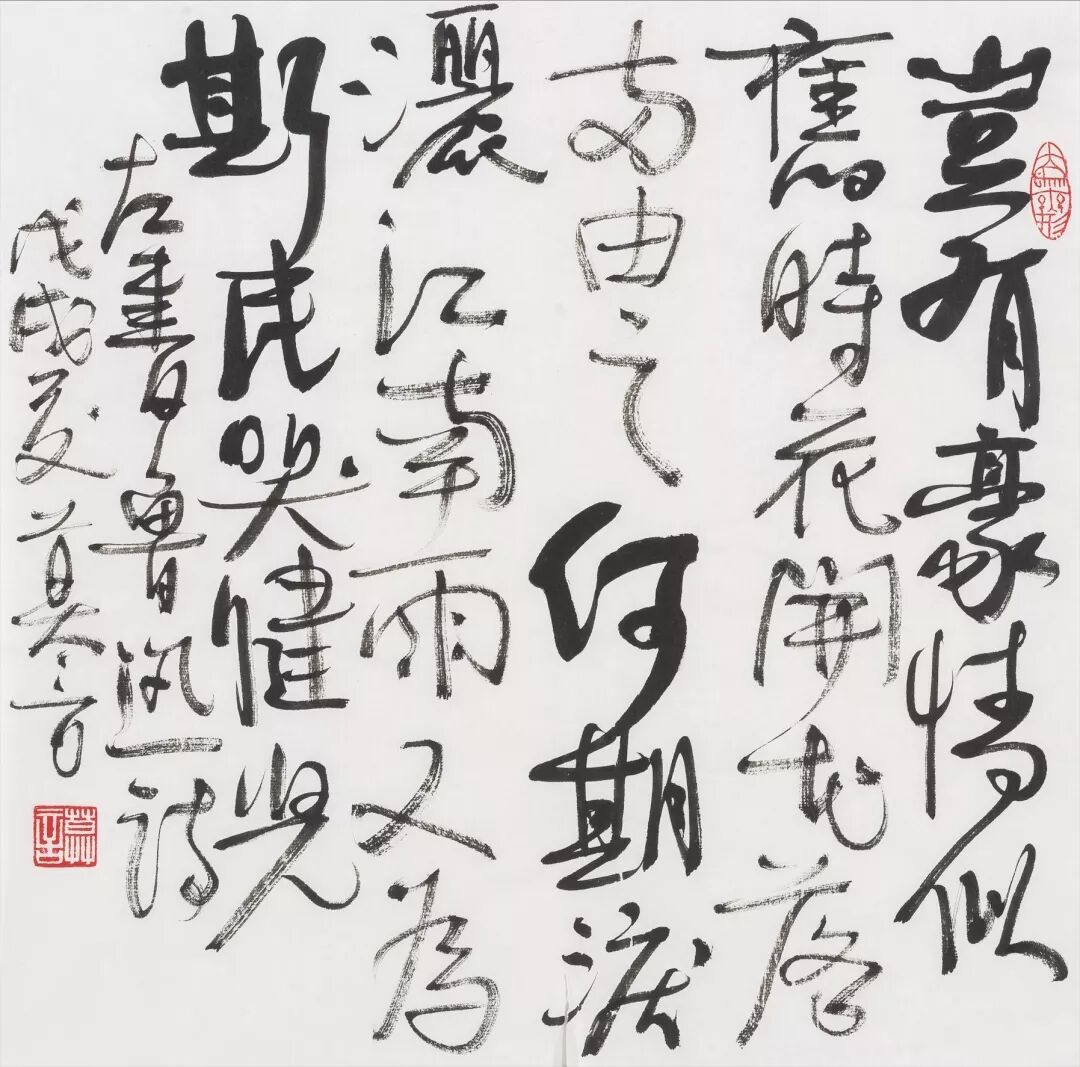 豈有豪情似
舊時花開花落
两由之何期淚
灑江南雨又為
斯民哭健児
左書魯迅詩
戊戌夏莫言
莫言